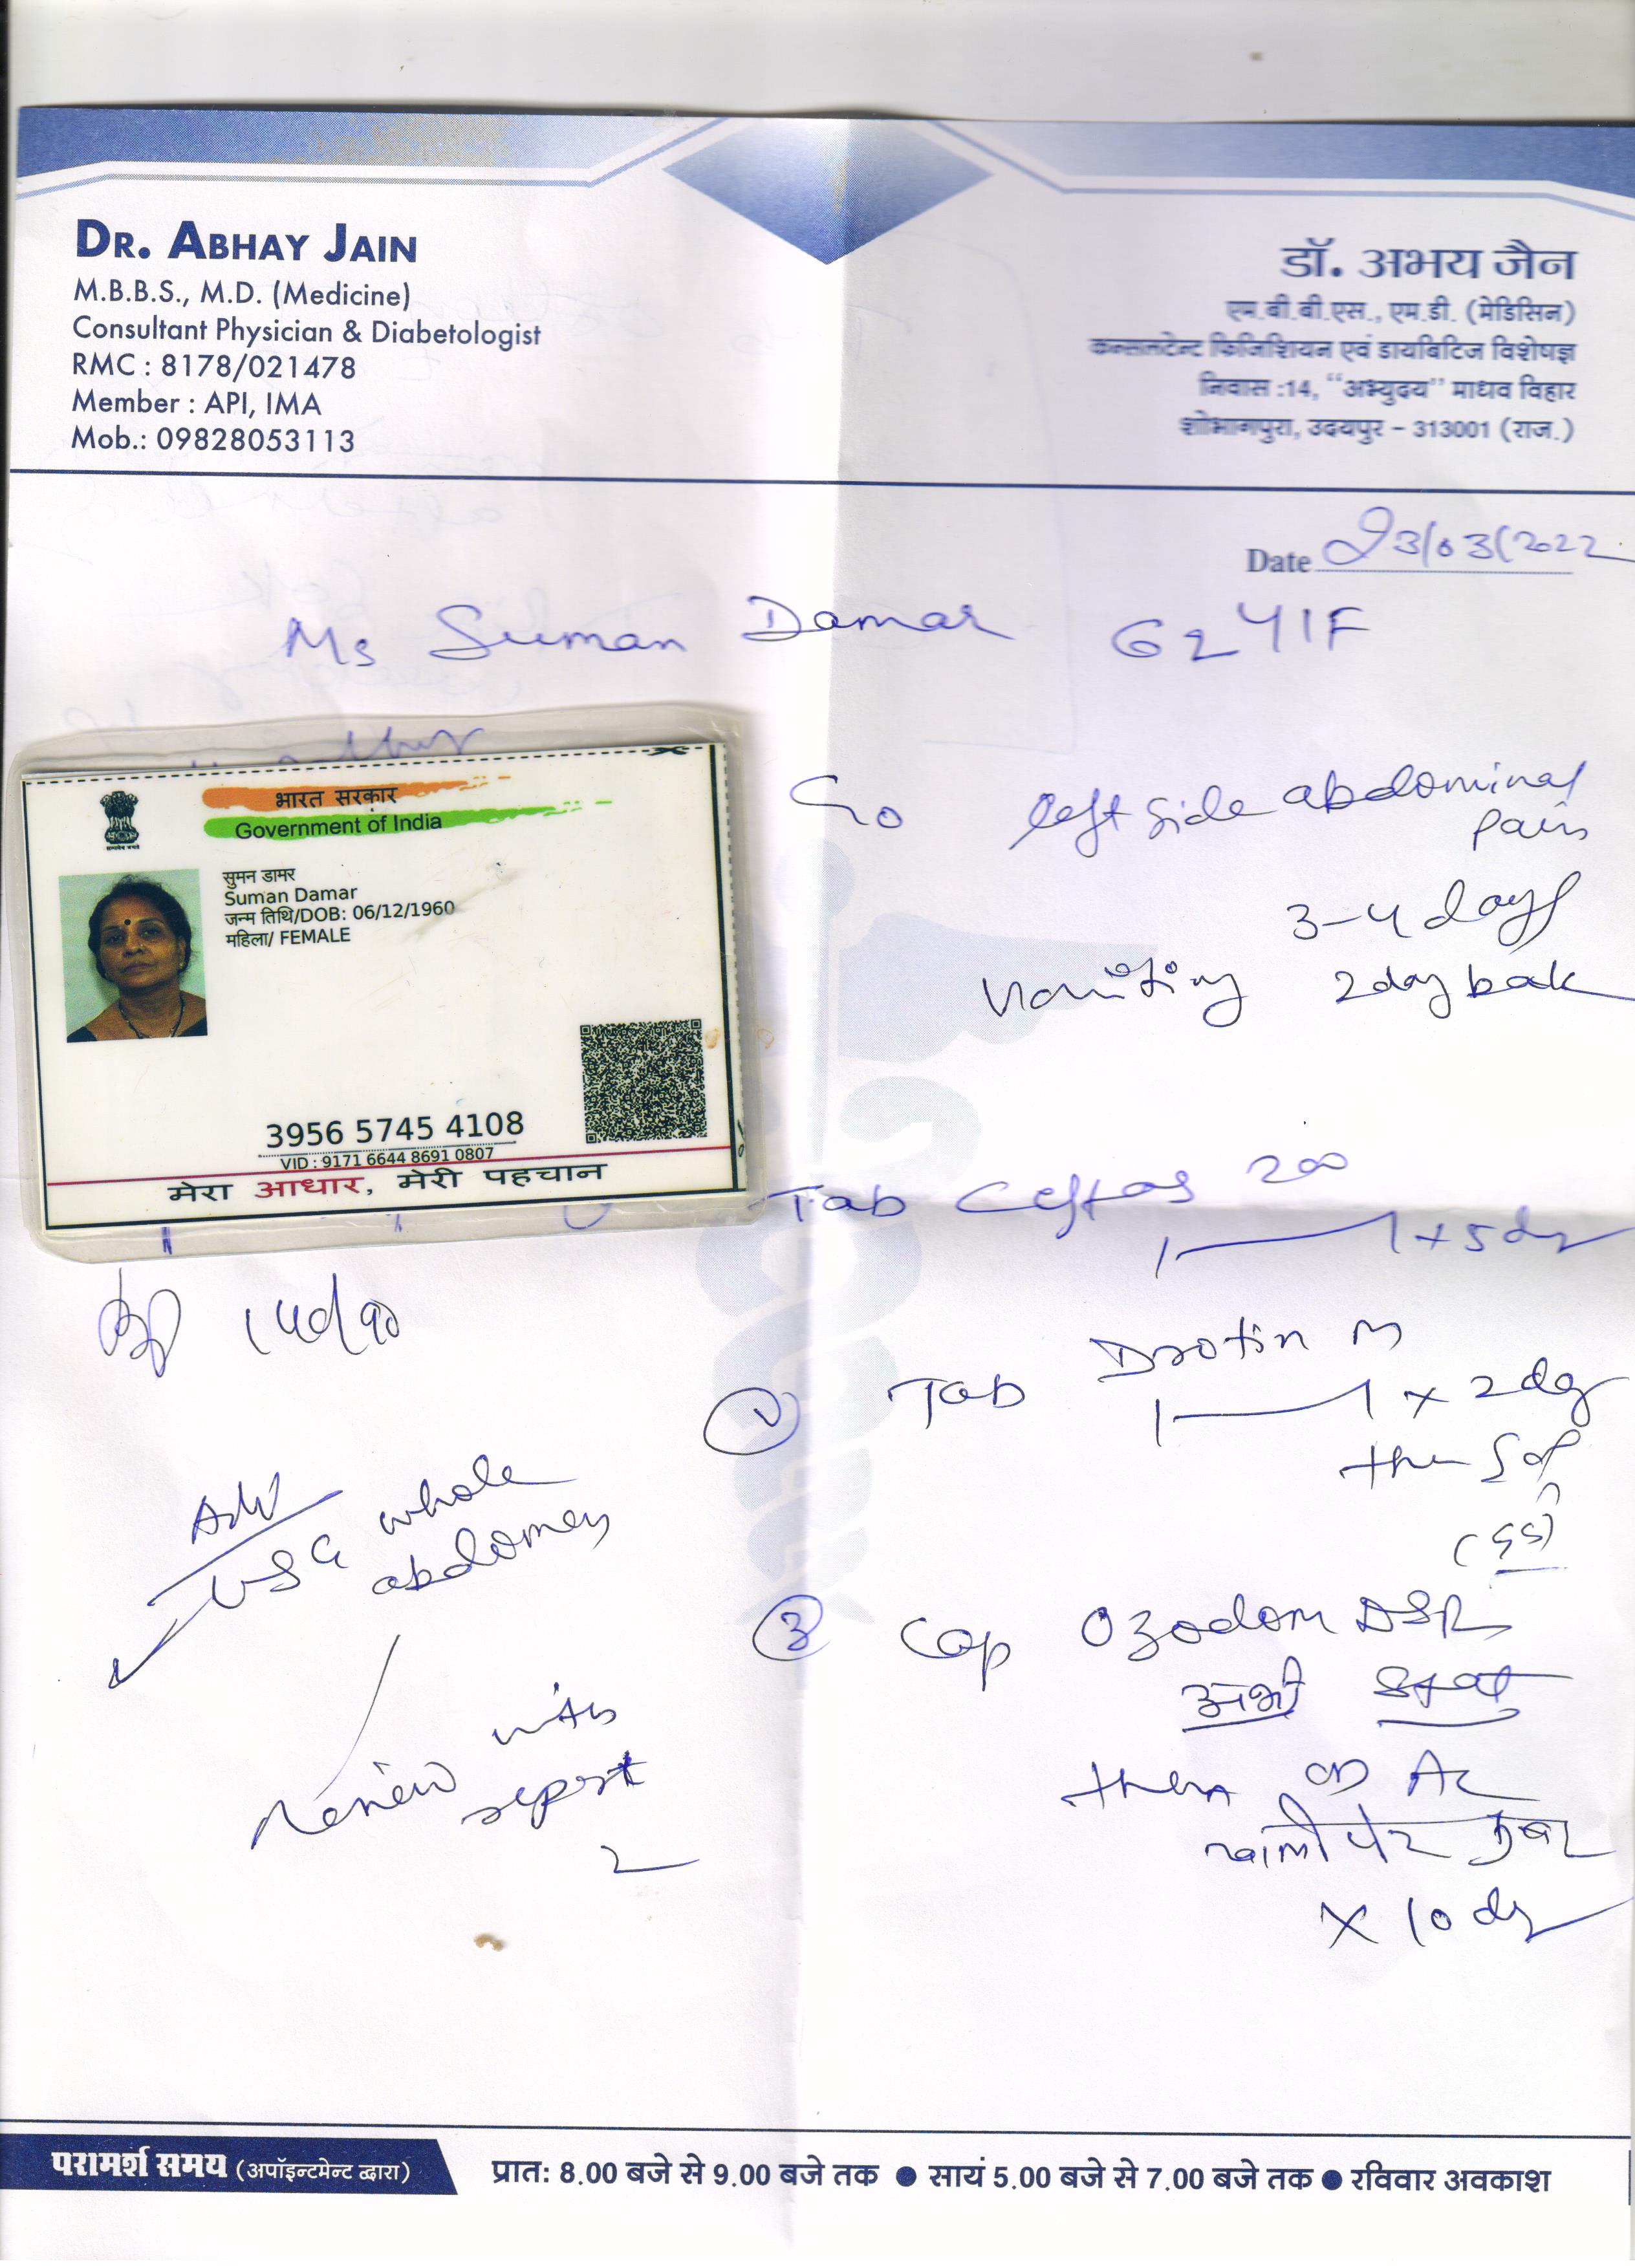 DR. ABHAY JAIN
M.B.B.S., M.D. (Medicine)
Consultant Physician & Diabetologist
RMC : 8178/021478
Member : API, IMA
Mob.: 09828053113
डॉ. अभय जैन
एम.बी.बी.एस., एम.डी. (मेडिसिन)
कन्सलटेन्ट फिजिशियन एवं डायबिटिज विशेषज्ञ
निवास :14, "अभ्युदय" माधव विहार
शोभागपुरा, उदयपुर - 313001 (राज.)
Date 23/03/2022
Ms Suman Damar 62 Y/F
भारत सरकार
Government of India
सुमन डामर
Suman Damar
जन्म तिथि/DOB: 06/12/1960
महिला/ FEMALE
3956 5745 4108
VID : 9171 6644 8691 0807
मेरा आधार, मेरी पहचान
left side abdominal
pain
3-4 days
Vomiting 2 day bak
Tab 200
1 1 x 5 dy
BP 140/90
Tab Drotin M
1 1 x 2 dy
then SOS
Adv
USG whole
abdomen
Review with
report
3 Cap Ozodom DSR
अभी Stat
then OD AC
खाली पेट सुबह
x 10 dy
परामर्श समय (अपॉइन्टमेन्ट द्वारा)
प्रात: 8.00 बजे से 9.00 बजे तक ● सायं 5.00 बजे से 7.00 बजे तक ● रविवार अवकाश